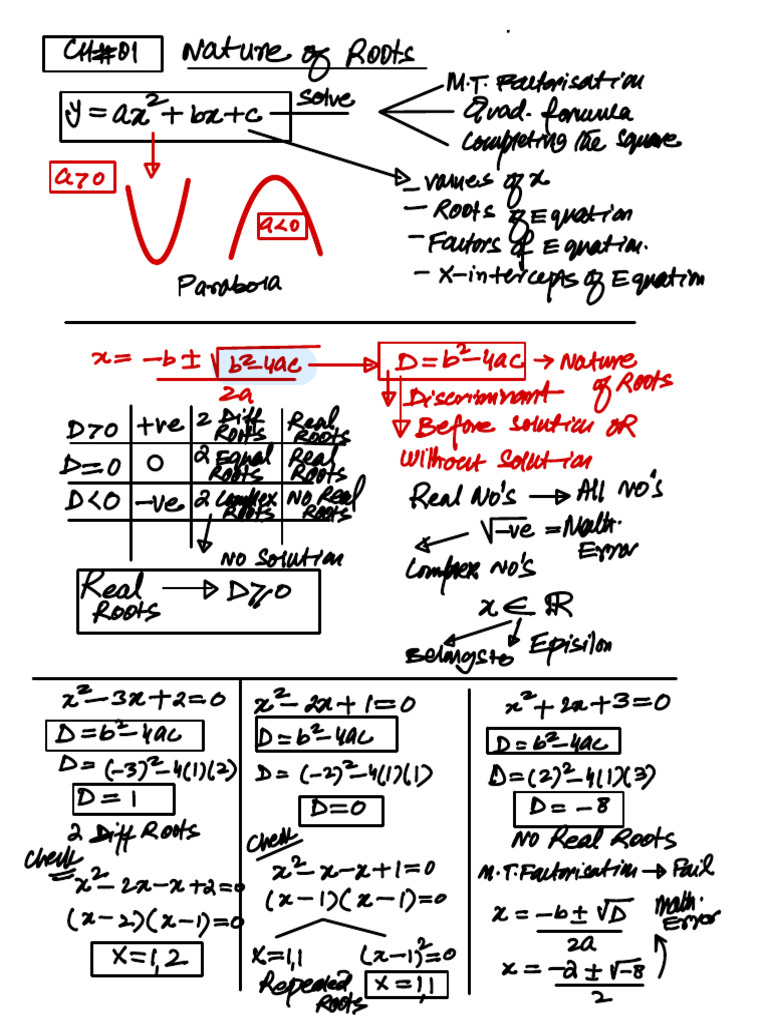 CH#01 Nature of Roots
y = ax² + bx + c solve
M.T. Factorisation
Quad. formula
Completing the square
a>0
a<0
Parabola
– values of x
– Roots of Equation
– Factors of Equation.
– X-intercepts of Equation
x = -b ± √b²-4ac / 2a → D = b²-4ac → Nature of Roots
Discriminant
Before solution OR
Without solution
D>0 +ve 2 Diff Roots Real Roots
D=0 0 2 Equal Roots Real Roots
D<0 -ve 2 Complex Roots No Real Roots
No Solution
Real Roots → D≥0
Real No's → All No's
√-ve = Math. Error
Complex No's
x ∈ ℝ
Belongs to Episilon
x²-3x+2=0
D=b²-4ac
D= (-3)²-4(1)(2)
D=1
2 Diff Roots
Check
x²-2x-x+2=0
(x-2)(x-1)=0
x=1,2
x²-2x+1=0
D=b²-4ac
D= (-2)²-4(1)(1)
D=0
Check
x²-x-x+1=0
(x-1)(x-1)=0
x=1,1 (x-1)²=0
Repeated Roots x=1,1
x²+2x+3=0
D=b²-4ac
D=(2)²-4(1)(3)
D=-8
No Real Roots
M.T. Factorisation → Fail
x = -b ± √D / 2a
Math. Error
x = -2 ± √-8 / 2